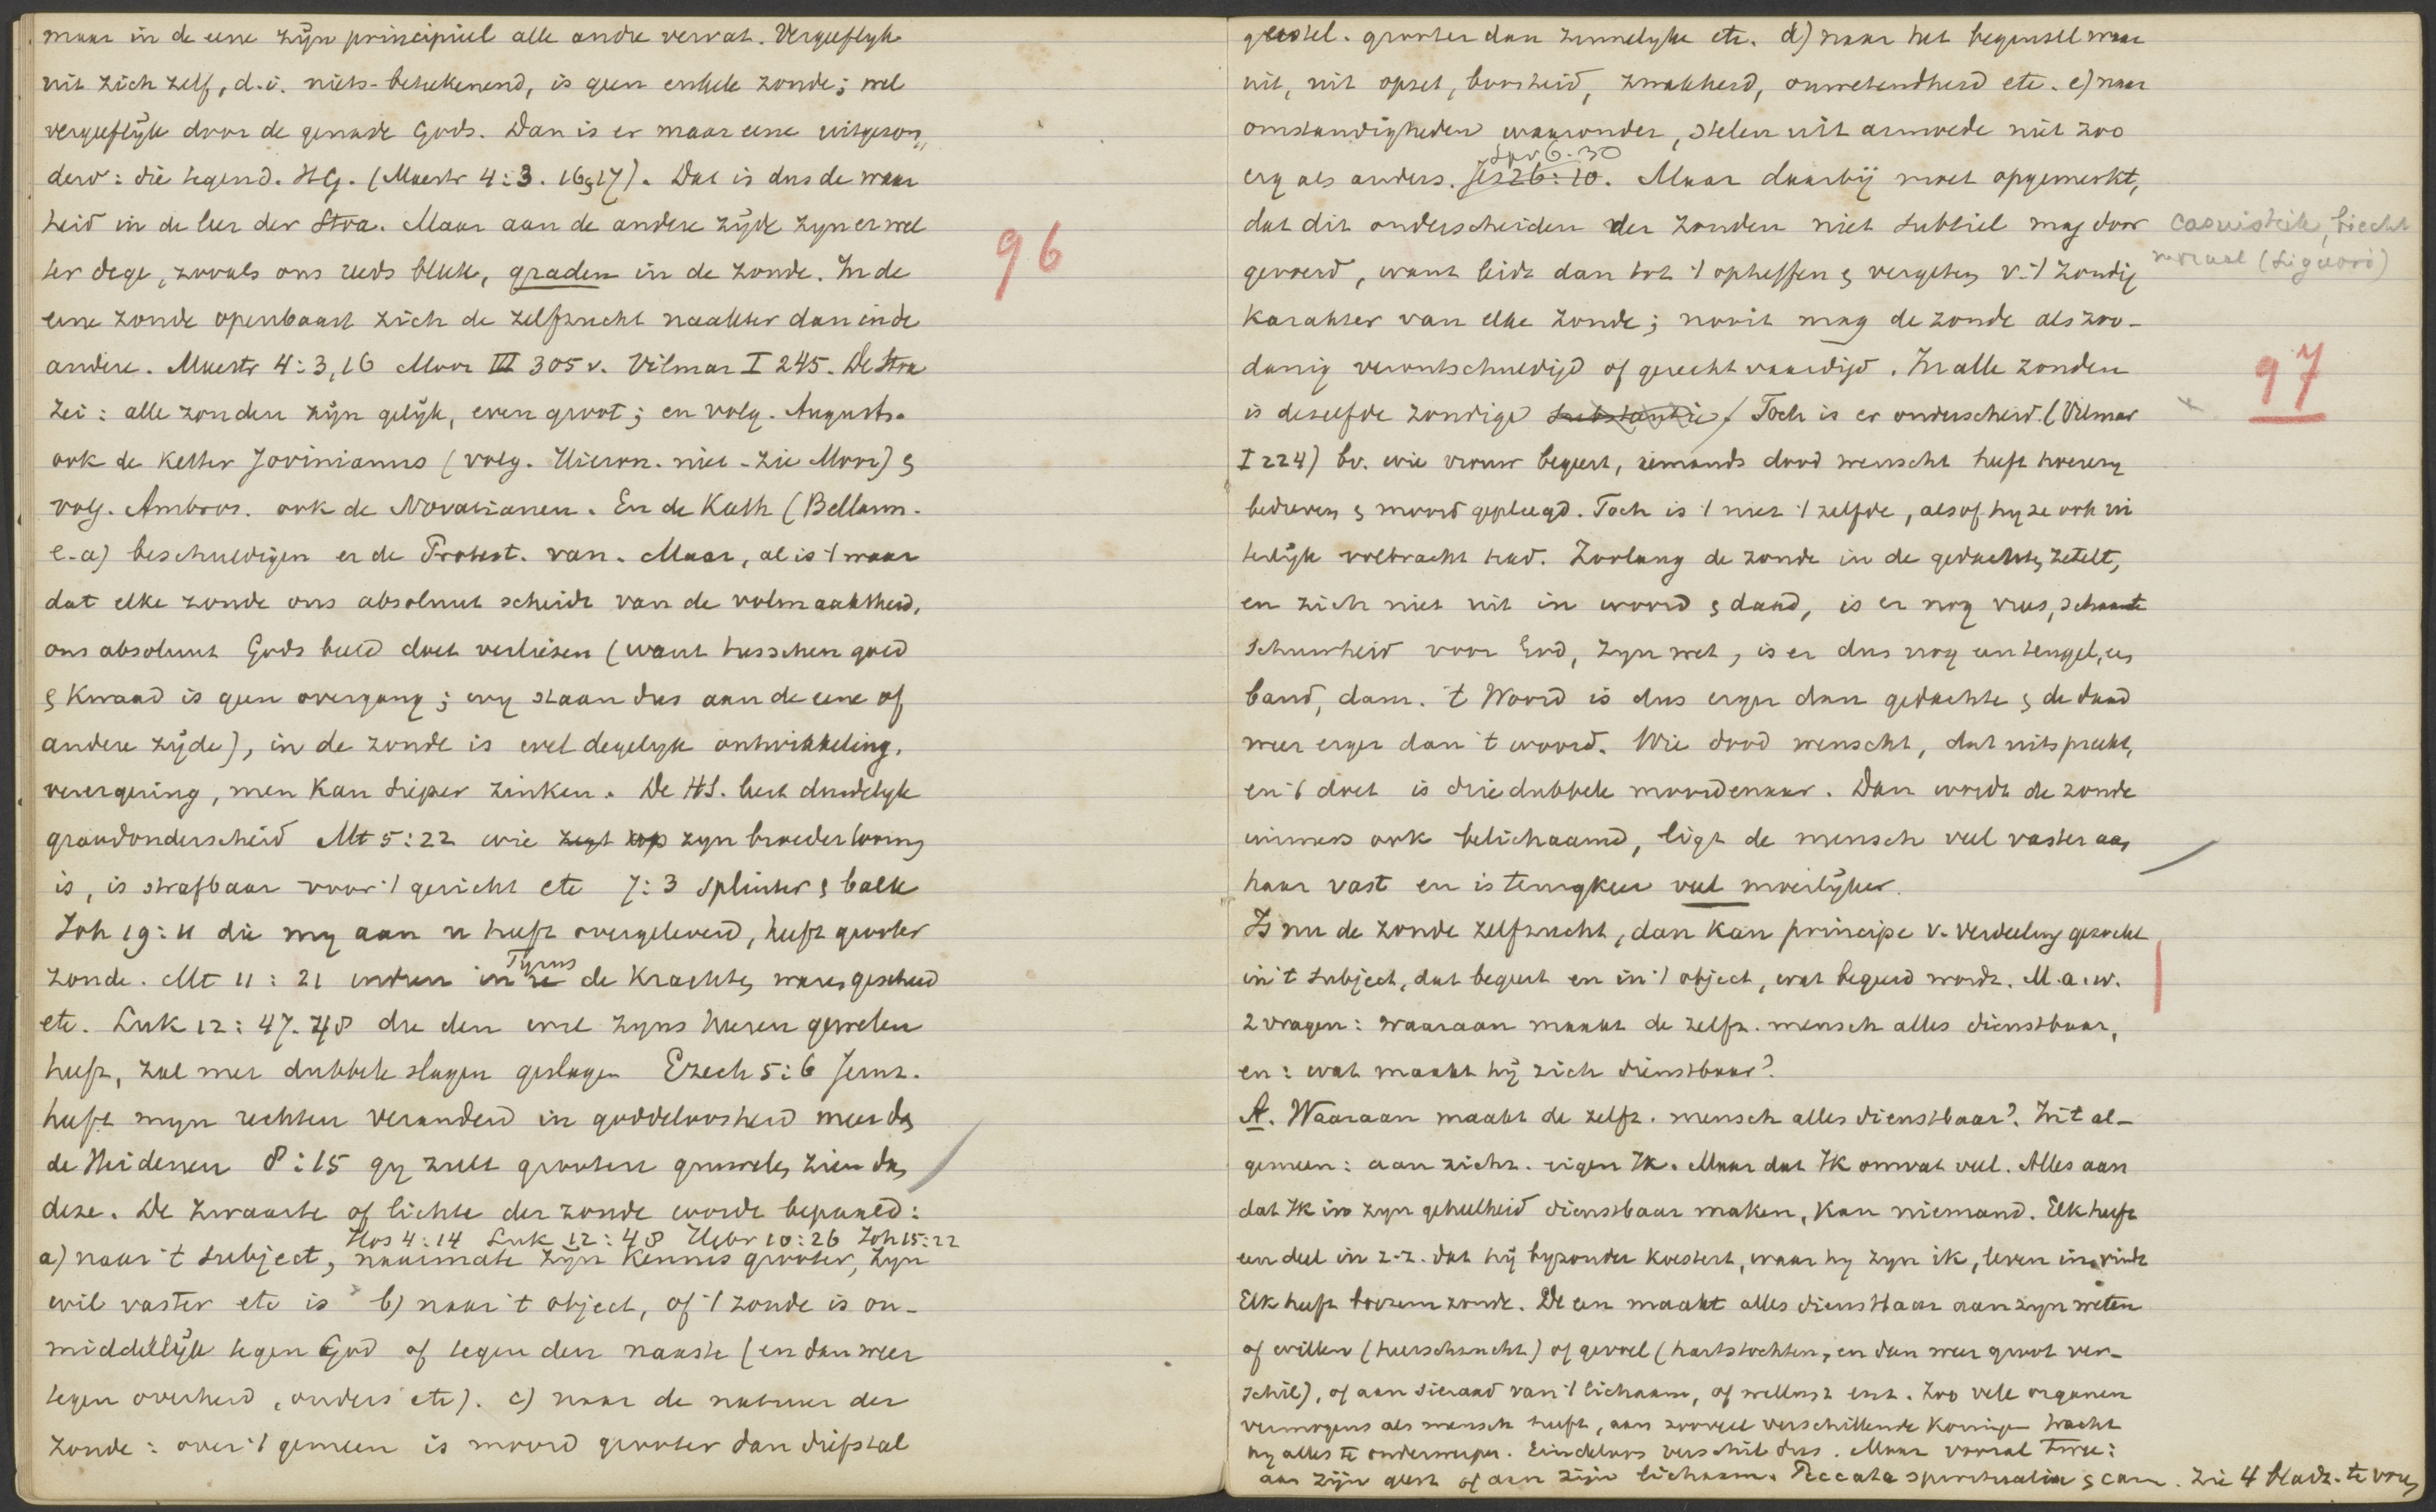 maar in de eene zijn principieel alle andre vervat. Vergeeflyk
uit zich zelf, d.i. niets-betekenend, is geen enkele zonde; wel
vergeeflyk door de genade Gods. Dan is er maar eene uitgezon„
derd: die tegend. HG. (Maestr 4:3. 16,17). Dat is dus de waar
heid in de leer der Stoa. Maar aan de andere zijde zyn er wel
ter dege, zooals ons reeds bleek, graden in de zonde. In de
eene zonde openbaart zich de zelfzucht naakter dan in de
andere. Maestr 4:3,16 Moor III 305 v. Vilmar I 245. De Stoa
zei: alle zonden zijn gelijk, even groot; en volg. Augusts.
ook de ketter Jovinianus (volg. Hieron. niet - zie Moor) &
volg. Ambros. ook de Novatianen. En de Kath (Bellarm.
e.a) beschuldigen er de Protest. van. Maar, al is 't waar
dat elke zonde ons absoluut scheidt van de volmaaktheid,
ons absoluut Gods beeld doet verliezen (want tusschen goed
& Kwaad is geen overgang; wy staan dus aan de eene of
andere zijde), in de zonde is wel degelyk ontwikkeling,
verergering, men kan dieper zinken. De HS. leert duidelyk
graadonderscheid Mt 5:22 wie zegt op zyn broeder toorng
is, is strafbaar voor 't gericht etc 7:3 splinter & balk
Joh 19:11 die my aan u heeft overgeleverd, heeft grooter
Tyrus
zonde. Mt 11:21 indien in de Krachtn waren geschied
etc. Luk 12:47.48 die den wil zyns heeren geweten
heeft, zal met dubbele slagen geslagen Ezech 5:6 Jeruz.
heeft myn rechten veranderd in goddeloosheid meer dan
de Heidenen 8:15 gy zult grootere gruwelen zien dan
deze. De zwaarte of lichte der zonde wordt bepaald:
Hos 4:14 Luk 12:48 Hebr 10:26 Joh 15:22
a) naar 't subject, naarmate zyn Kennis grooter, zyn
wil vaster etc is b) naar 't object, of 't zonde is on-
middellijk tegen God of tegen den naaste (en dan weer
tegen overheid, ouders etc). c) naar de natuur der
zonde: over 't gemeen is moord grooter dan diefstal
96
geestel. grooter dan zinnelyke etc. d) naar het beginsel waar
uit, uit opzet, boosheid, zwakheid, onwetendheid etc. e) naar
omstandigheden waaronder, stelen uit armoede niet zoo
Spr 6:30
erg als anders. Jes 26:10. Maar daarbij moet opgemerkt,
dat dit onderscheiden der zonden niet subtiel mag door
casuistiek, biecht
moraal (Liguori)
gevoerd, want leidt dan tot 't opheffen & vergeten v. 't zondig
karakter van elke zonde; nooit mag de zonde als zoo-
danig verontschuldigd of gerechtvaardigd. In alle zonden
is dezelfde zondige substantie. Toch is er onderscheid. (Vilmar
97
I 224) bv. wie vrouw begeert, iemands dood wenscht heeft hoerery
bedreven & moord gepleegd. Toch is 't niet 't zelfde, alsof hy ze ook ui
terlijk volbracht had. Zoolang de zonde in de gedachten zetelt,
en zich niet uit in woord & daad, is er nog vrees, schaamte
schuwheid voor God, zyn wet, is er dus nog een teugel, een
band, dam. 't Woord is dus erger dan gedachte & de daad
weer erger dan 't woord. Wie dood wenscht, dat uitspreekt,
en 't doet is driedubbele moordenaar. Dan wordt de zonde
immers ook belichaamd, ligt de mensch veel vaster aan
haar vast en is terugkeer veel moeilijker.
Is nu de zonde zelfzucht, dan kan principe v. verdeeling gezocht
in 't subject, dat begeert en in 't object, wat begeerd wordt. M.a.w.
2 vragen: waaraan maakt de zelfz. mensch alles dienstbaar,
en: wat maakt hij zich dienstbaar?
A. Waaraan maakt de zelfz. mensch alles dienstbaar? In 't al-
gemeen: aan zichz. eigen Ik. Maar dat Ik omvat veel. Alles aan
dat Ik in zyn geheelheid dienstbaar maken, kan niemand. Elk heeft
een deel in z-z. dat hij byzonder koestert, waar hy zyn ik, leven in vindt
Elk heeft boezemzonde. De een maakt alles dienstbaar aan zyn weten
of willen (heerschzucht) of gevoel (hartstochten, en dan weer groot ver-
schil), of aan sieraad van 't lichaam, of wellust enz. Zoo vele organen
vermogens als mensch heeft, aan zooveel verschillende Koningen tracht
hy alles te onderwerpen. Eindeloos verschil dus. Maar vooral twee:
aan zijn geest of aan zijn lichaam. Peccata spiritualia & carn. Zie 4 bladz. te voren